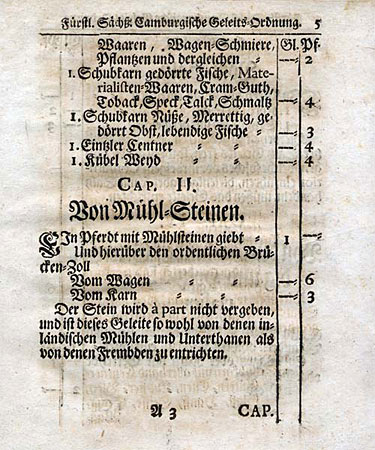 Fürstl. Sächß. Camburgische Geleits-Ordnung. 5
Waaren, Wagen-Schmiere, Gl. Pf.
Pflantzen und dergleichen - — 2
1. Schubkarn gedörrte Fische, Mate-
rialisten-Waaren, Cram-Guth,
Toback, Speck, Talck, Schmaltz — 4
1. Schubkarn Nüße, Merrettig, ge-
dörrt Obst, lebendige Fische - — 3
1. Eintzler Centner - - — 4
1. Kübel Weyd - - — 4
CAP. II.
Von Mühl-Steinen.
EIn Pferdt mit Mühlsteinen giebt - 1 —
Und hierüber den ordentlichen Brü-
cken-Zoll
Vom Wagen - - - — 6
Vom Karn - - - — 3
Der Stein wird à part nicht vergeben,
und ist dieses Geleite so wohl von denen in-
ländischen Mühlen und Unterthanen als
von denen Frembden zu entrichten.
A 3 CAP.